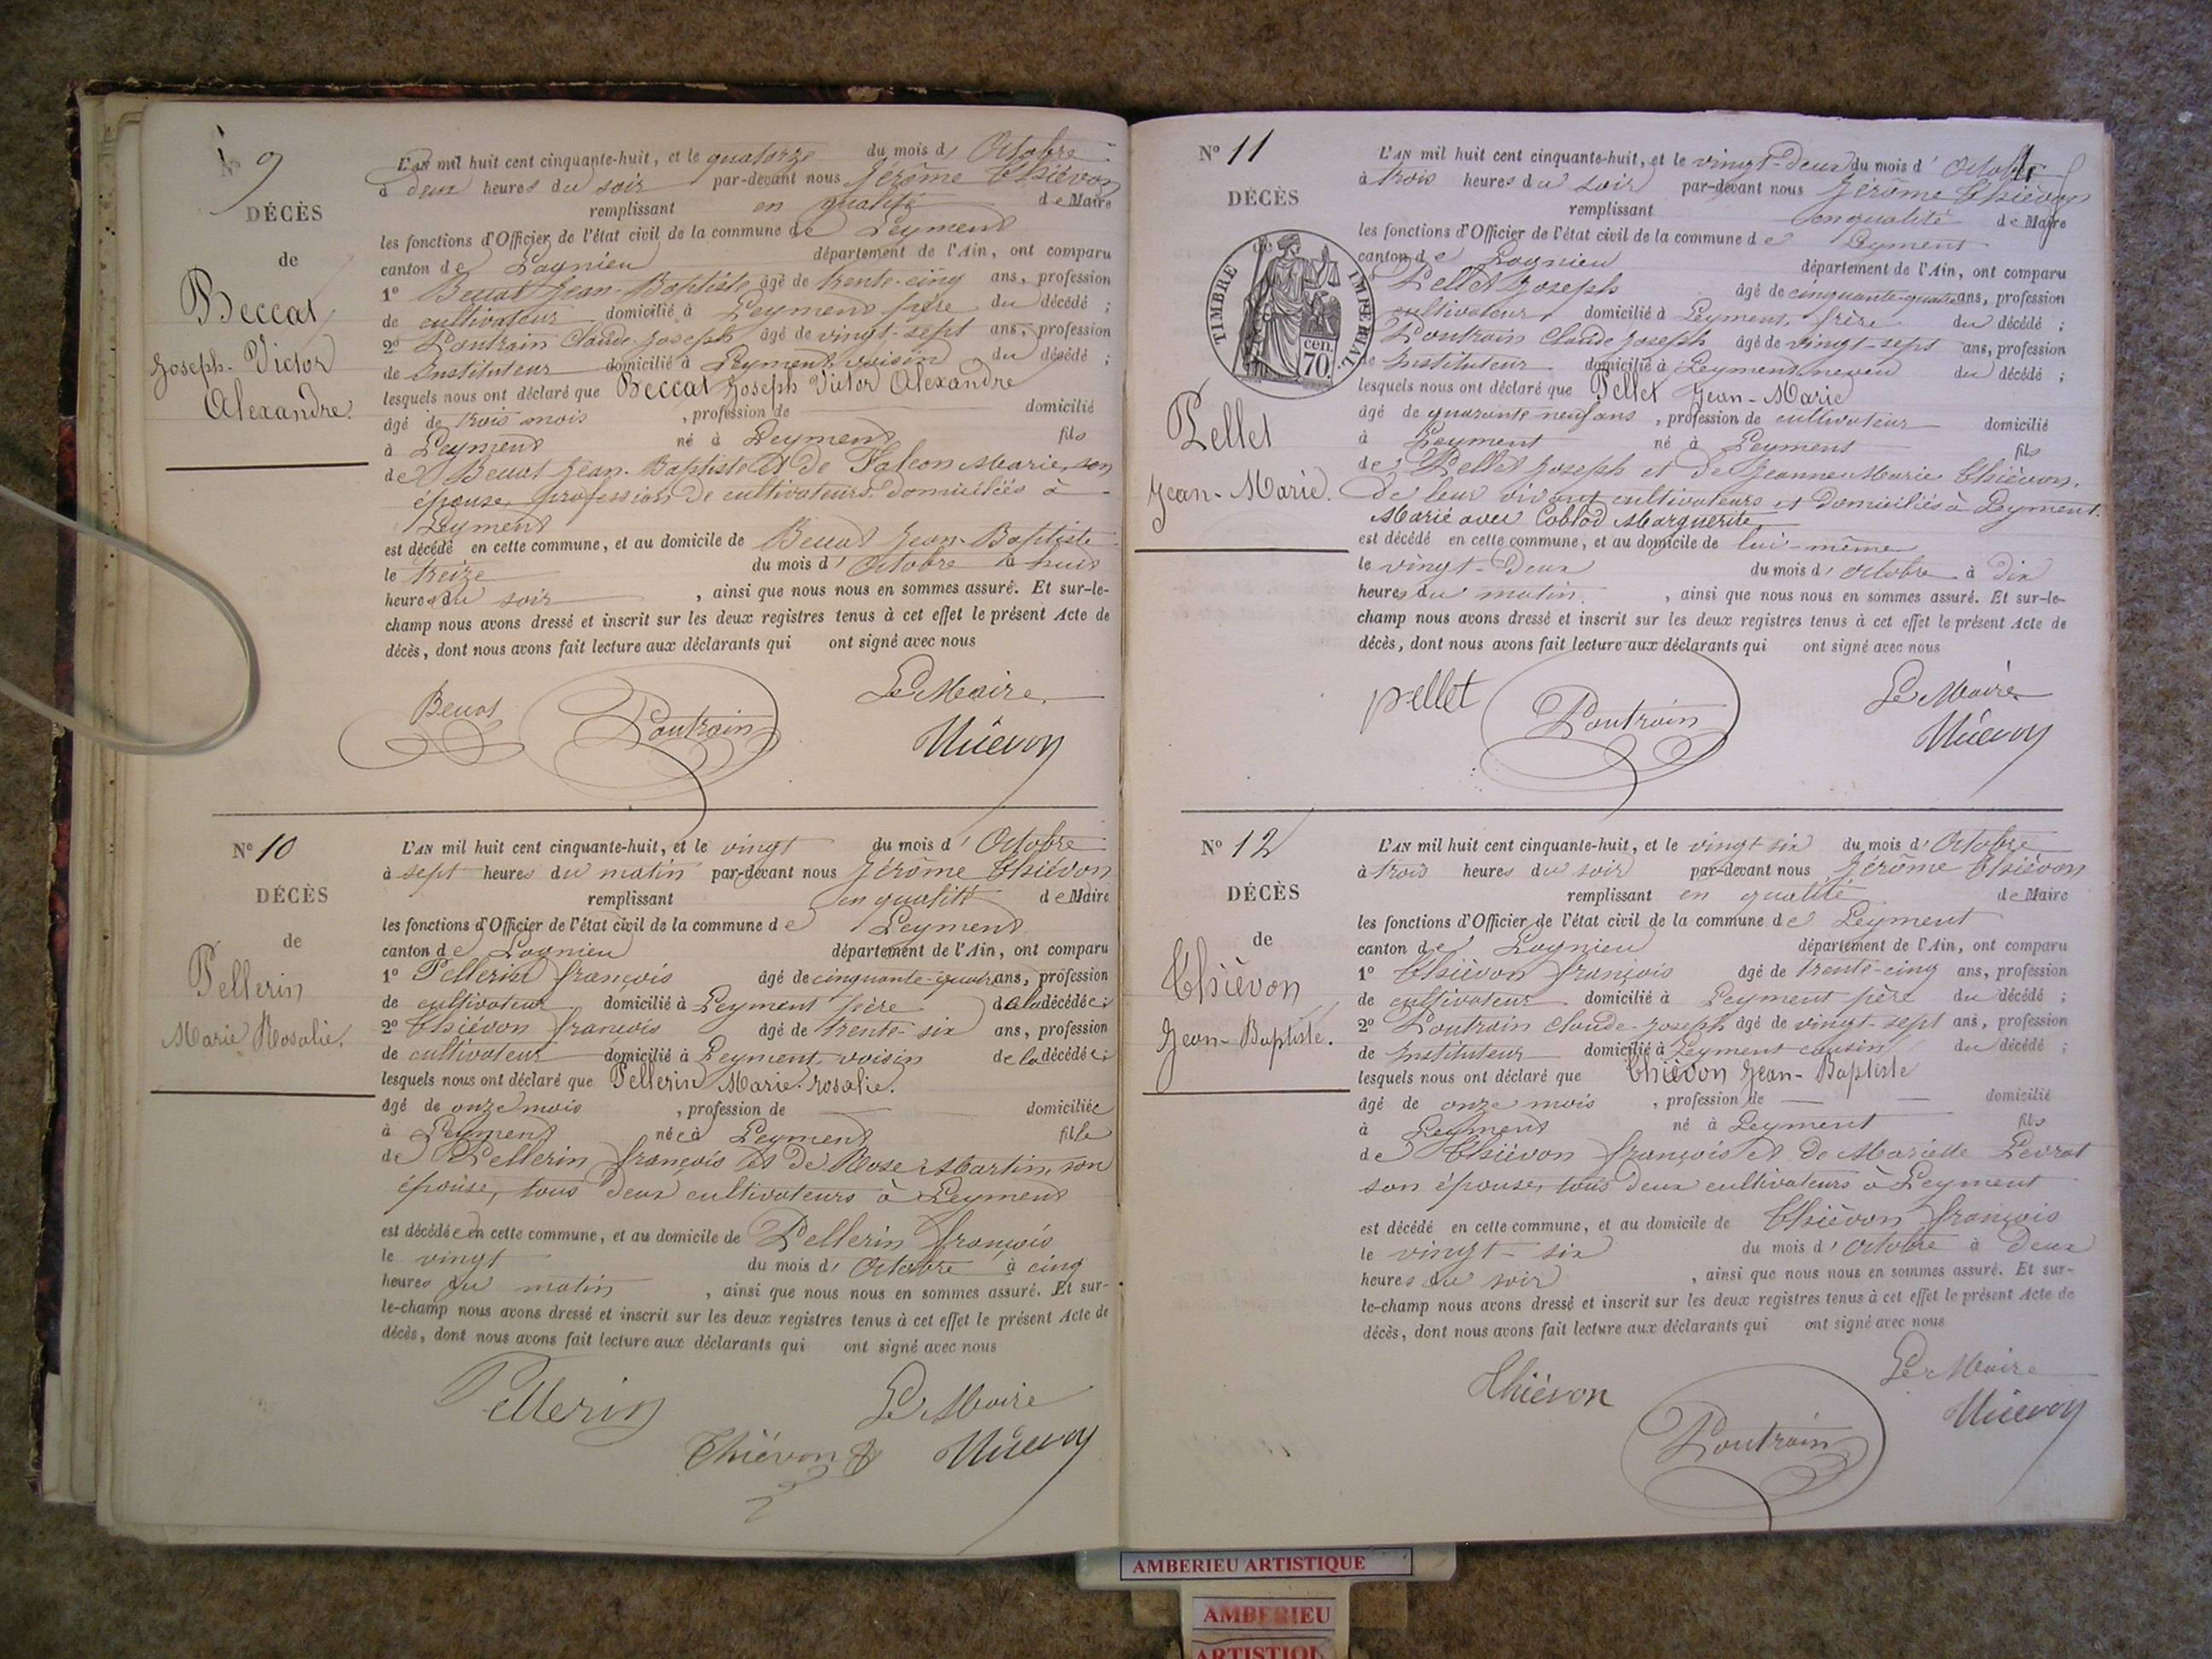 N° 9
DÉCÈS
de
Beccat
Joseph-Victor
Alexandre.
L'AN mil huit cent cinquante-huit, et le quatorze du mois d' Octobre
à deux heures du soir par-devant nous Jérôme Thiévon
remplissant en qualité de Maire
les fonctions d'Officier de l'état civil de la commune de Leyment
canton de Lagnieu département de l'Ain, ont comparu
1° Beccat Jean-Baptiste âgé de trente-cinq ans, profession
de cultivateur domicilié à Leyment père du décédé ;
2° Poutrain Claude-Joseph âgé de vingt-sept ans, profession
de Instituteur domicilié à Leyment, voisin du décédé ;
lesquels nous ont déclaré que Beccat Joseph Victor Alexandre
âgé de trois mois , profession de domicilié
à Leyment né à Leyment fils
de Beccat Jean-Baptiste et de Falcon Marie, son
épouse, profession de cultivateurs domiciliés à
Leyment
est décédé en cette commune, et au domicile de Beccat Jean-Baptiste
le treize du mois d' Octobre à huit
heures du soir , ainsi que nous nous en sommes assuré. Et sur-le-
champ nous avons dressé et inscrit sur les deux registres tenus à cet effet le présent Acte de
décès, dont nous avons fait lecture aux déclarants qui ont signé avec nous
Beccat Poutrain Le Maire
Thiévon
N° 10
DÉCÈS
de
Pellerin
Marie Rosalie.
L'AN mil huit cent cinquante-huit, et le vingt du mois d' Octobre
à sept heures du matin par-devant nous Jérôme Thiévon
remplissant en qualité de Maire
les fonctions d'Officier de l'état civil de la commune de Leyment
canton de Lagnieu département de l'Ain, ont comparu
1° Pellerin françois âgé de cinquante-quatre ans, profession
de cultivateur domicilié à Leyment père de la décédée ;
2° Thiévon françois âgé de trente-six ans, profession
de cultivateur domicilié à Leyment, voisin de la décédée ;
lesquels nous ont déclaré que Pellerin Marie-rosalie.
âgé de onze mois , profession de domiciliée
à Leyment née à Leyment fille
de Pellerin françois et de Rose Martin, son
épouse, tous deux cultivateurs à Leyment
est décédée en cette commune, et au domicile de Pellerin françois
le vingt du mois d' Octobre à cinq
heures du matin , ainsi que nous nous en sommes assuré. Et sur-
le-champ nous avons dressé et inscrit sur les deux registres tenus à cet effet le présent Acte de
décès, dont nous avons fait lecture aux déclarants qui ont signé avec nous
Pellerin Le Maire
Thiévon f Thiévon
N° 11
DÉCÈS
de
TIMBRE IMPÉRIAL
70 cen.
Pellet
Jean-Marie.
L'AN mil huit cent cinquante-huit, et le vingt-deux du mois d' Octobre
à trois heures du soir par-devant nous Jérôme Thiévon
remplissant en qualité de Maire
les fonctions d'Officier de l'état civil de la commune de Leyment
canton de Lagnieu département de l'Ain, ont comparu
Pellet Joseph âgé de cinquante-quatre ans, profession
cultivateur, domicilié à Leyment, frère du décédé ;
Poutrain Claude Joseph âgé de vingt-sept ans, profession
de Instituteur domicilié à Leyment neveu du décédé ;
lesquels nous ont déclaré que Pellet Jean-Marie
âgé de quarante neuf ans , profession de cultivateur domicilié
à Leyment né à Leyment fils
de Pellet Joseph et de Jeanne Marie Thiévon,
de leur vivant cultivateurs et domiciliés à Leyment.
Marié avec Coblod Marguerite,
est décédé en cette commune, et au domicile de lui-même
le vingt-deux du mois d' Octobre à dix
heures du matin , ainsi que nous nous en sommes assuré. Et sur-le-
champ nous avons dressé et inscrit sur les deux registres tenus à cet effet le présent Acte de
décès, dont nous avons fait lecture aux déclarants qui ont signé avec nous
pellet Poutrain Le Maire
Thiévon
N° 12
DÉCÈS
de
Thiévon
Jean-Baptiste.
L'AN mil huit cent cinquante-huit, et le vingt six du mois d' Octobre
à trois heures du soir par-devant nous Jérôme Thiévon
remplissant en qualité de Maire
les fonctions d'Officier de l'état civil de la commune de Leyment
canton de Lagnieu département de l'Ain, ont comparu
1° Thiévon françois âgé de trente-cinq ans, profession
de cultivateur domicilié à Leyment père du décédé ;
2° Poutrain Claude-Joseph âgé de vingt-sept ans, profession
de Instituteur domicilié à Leyment cousin du décédé ;
lesquels nous ont déclaré que Thiévon Jean-Baptiste
âgé de onze mois , profession de domicilié
à Leyment né à Leyment fils
de Thiévon françois et de Mariette Levrat
son épouse, tous deux cultivateurs à Leyment
est décédé en cette commune, et au domicile de Thiévon françois
le vingt-six du mois d' Octobre à deux
heures du soir , ainsi que nous nous en sommes assuré. Et sur-
le-champ nous avons dressé et inscrit sur les deux registres tenus à cet effet le présent Acte de
décès, dont nous avons fait lecture aux déclarants qui ont signé avec nous
Thiévon Poutrain Le Maire
Thiévon
AMBERIEU ARTISTIQUE
AMBERIEU
ARTISTIQU